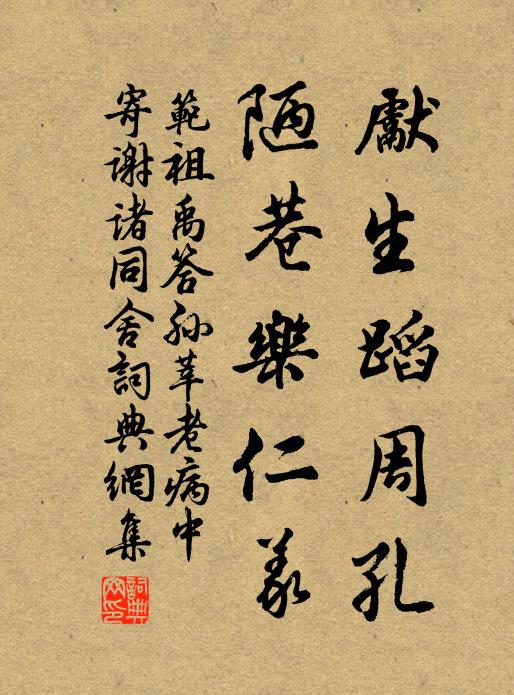 獻生蹈周孔
陋巷樂仁義
範祖禹答孙莘老病中
寄谢诸同舍詞典網集
詞典网印